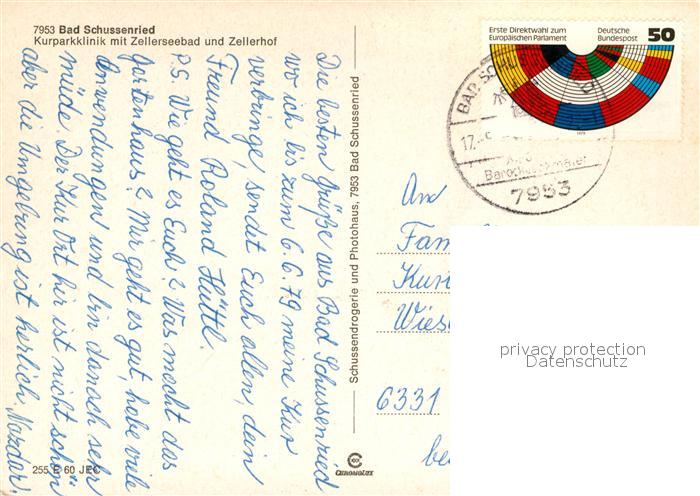 7953 Bad Schussenried
Kurparkklinik mit Zellerseebad und Zellerhof
Die besten Grüße aus Bad Schussenried
wo ich bis zum 6.6.79 meine Kur
verbringe, sendt Euch allen, dein
Freund Roland Hüttl.
P.S. Wie geht es Euch? Was mecht das
Gartenhaus? Mir geht es gut, habe viele
Anwendungen und bin danach sehr
müde. Der Kur Ort hir ist nicht schön
aber die Umgebung ist herlich. Nazdar!
255 E 60 JEC
Schussendrogerie und Photohaus, 7953 Bad Schussenried
Cekade
Erste Direktwahl zum
Europäischen Parlament
Deutsche
Bundespost
50
1979
BAD SC
17.-5
7953
An
Fam
Kur
Wies
6331
be
privacy protection
Datenschutz